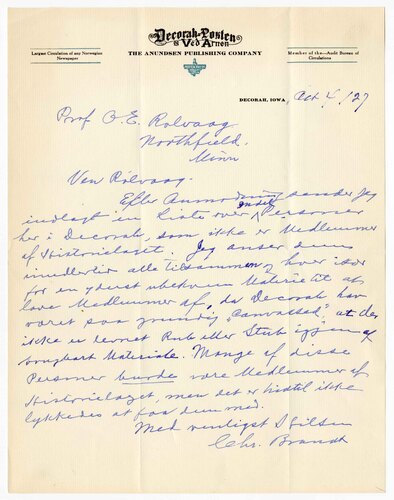 Decorah-Posten
& Ved Arnen
THE ANUNDSEN PUBLISHING COMPANY
Largest Circulation of any Norwegian
Newspaper
Member of the—Audit Bureau of
Circulations
DECORAH, IOWA, Oct 4/27
Prof O. E. Rolvaag
Northfield.
Minn
Ven Rölvaag.
Efter Anmodning sender Jeg
indlagt en Liste over Endel Personer
her i Decorah, som ikke er Medlemmer
af Historielaget. Jeg anser dem
imidlertid alle tilsammen og hver især
for en yderst ubekvem Materie til at
lave Medlemmer af, da Decorah har
været saa grundig "canvassed," at der
ikke er levnet Rub eller Stub igjen af
brugbart Materiale. Mange af disse
Personer burde være Medlemmer af
Historielaget, men det er hidtil ikke
lykkedes at faa dem med.
Med venligst Hilsen
Chr. Brandt